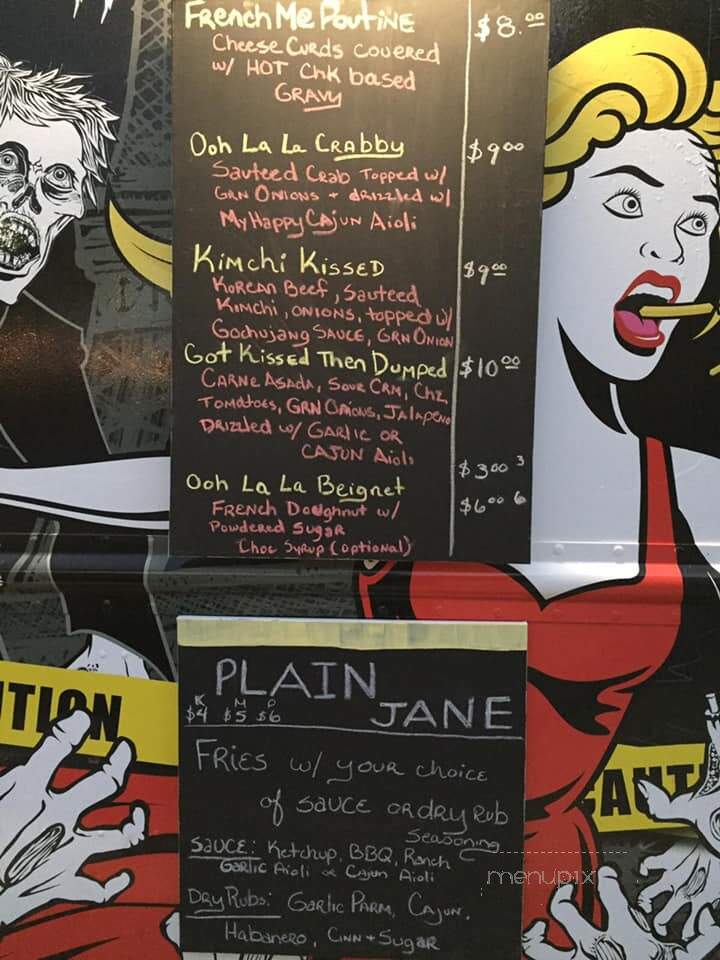 French Me Poutine $8.00
Cheese Curds covered
w/ HOT Chk based
GRAVY
Ooh La La CRABBY $9.00
Sauteed Crab Topped w/
GRN ONIONS + drizzled w/
My Happy Cajun Aioli
Kimchi Kissed $9.00
Korean Beef, Sauteed
Kimchi, onions, topped w/
Gochujang Sauce, GRN ONION
Got Kissed Then Dumped $10.00
Carne Asada, Sour Crm, Chz,
Tomatoes, GRN Onions, Jalapeno
Drizzled w/ Garlic or
CAJUN Aioli
$3.00 3
Ooh La La Beignet $6.00 6
French Doughnut w/
Powdered Sugar
Choc Syrup (optional)
PLAIN
K M P
$4 $5 $6
JANE
TION
FRIES w/ your choice
of sauce or dry rub
Seasoning
CAUT
Sauce: Ketchup, BBQ, Ranch
Garlic Aioli or Cajun Aioli
menupix
Dry Rubs: Garlic Parm, Cajun,
Habanero, Cinn + Sugar